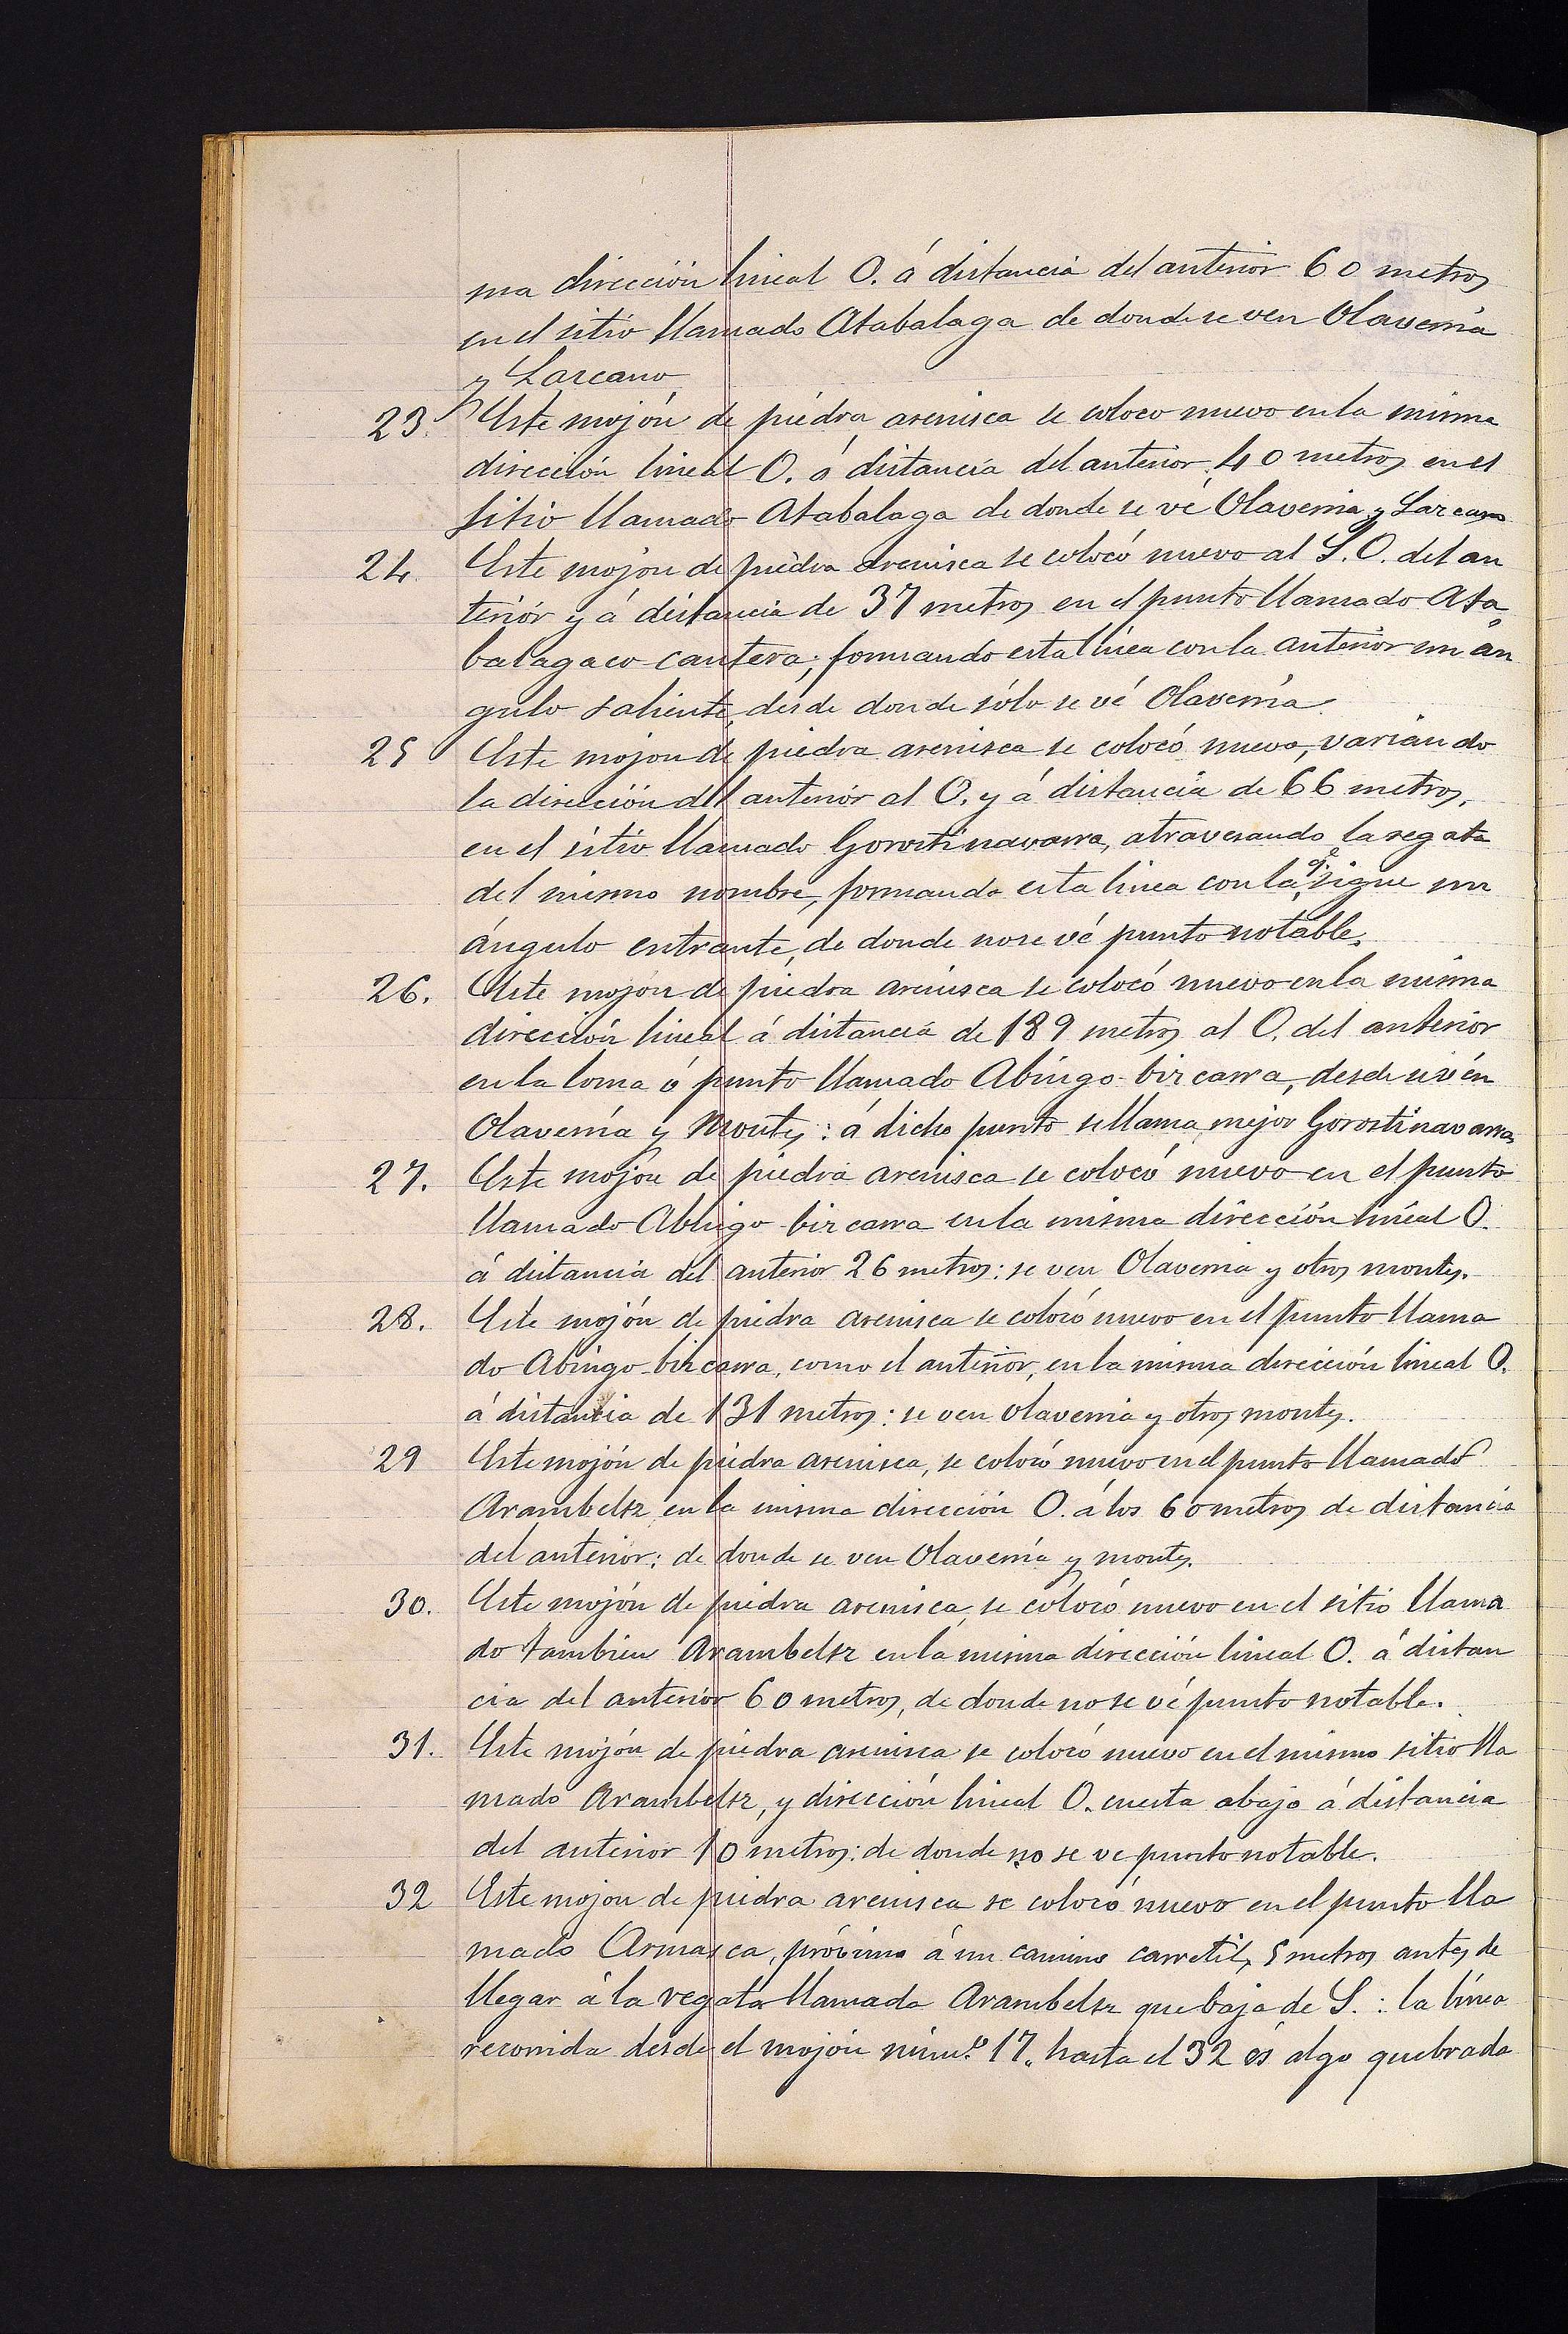 ma dirección lineal O. á distancia del anterior 60 metros
en el sitio llamado Atabalaga de donde se ven Olaverria
y Lazcano
23. Este mojón de piedra arenisca se coloco nuevo en la misma
dirección lineal O. á distancia del anterior 40 metros en el
sitio llamado Atabalaga de donde se vé Olaverria y Lazcano
24. Este mojon de piedra arenisca se colocó nuevo al S.O. del an
teriór y á distancia de 37 metros en el punto llamado Ata
balagaco-cantera; formando esta linea con la anterior un án
gulo saliente, desde donde sólo se vé Olaverria.
25 Este mojon de piedra arenisca se colocó nuevo, variando
la dirección del anteriór al O. y á distancia de 66 metros,
en el sitio llamado Gorostinavarra, atravesando la regata
del mismo nombre, formando esta linea con la qe. sigue un
ángulo entrante, de donde no se vé punto notable.
26. Este mojon de piedra arenisca se colocó nuevo en la misma
dirección lineal á distancia de 189 metros al O. del anterior
en la loma ó punto llamado Abingo-bizcarra, desde se vén
Olaverría y Montes: á dicho punto se llama mejor Gorostinavarra
27. Este mojón de piedra arenisca se colocó nuevo en el punto
llamado Abingo-bizcarra en la misma dirección lineal O.
á distancia del anterior 26 metros: se ven Olaverria y otros montes.
28. Este mojón de piedra arenisca se colocó nuevo en el punto llama
do Abingo-bizcarra, como el anterior, en la misma dirección lineal O.
á distancia de 131 metros: se ven Olaverria y otros montes.
29 Este mojón de piedra arenisca, se colocó nuevo en el punto llamado
Arambeltz en la misma dirección O. á los 60 metros de distancia
del anterior: de donde se ven Olaverría y montes.
30. Este mojón de piedra arenisca, se colocó nuevo en el sitio llama
do tambien Arambeltz en la misma dirección lineal O. á distan
cia del anteriór 60 metros, de donde no se vé punto notable.
31. Este mojón de piedra arenisca se colocó nuevo en el mismo sitio lla
mado Arambeltz, y dirección lineal O. cuesta abajo á distancia
del anterior 10 metros: de donde no se ve punto notable.
32 Este mojon de piedra arenisca se colocó nuevo en el punto lla
mado Armasca, próximo á un camino carretil, 5 metros antes de
llegar á la regata llamada Arambeltz que baja de S.: la línea
recorrida desde el mojón núm.o 17. hasta el 32 és algo quebrada